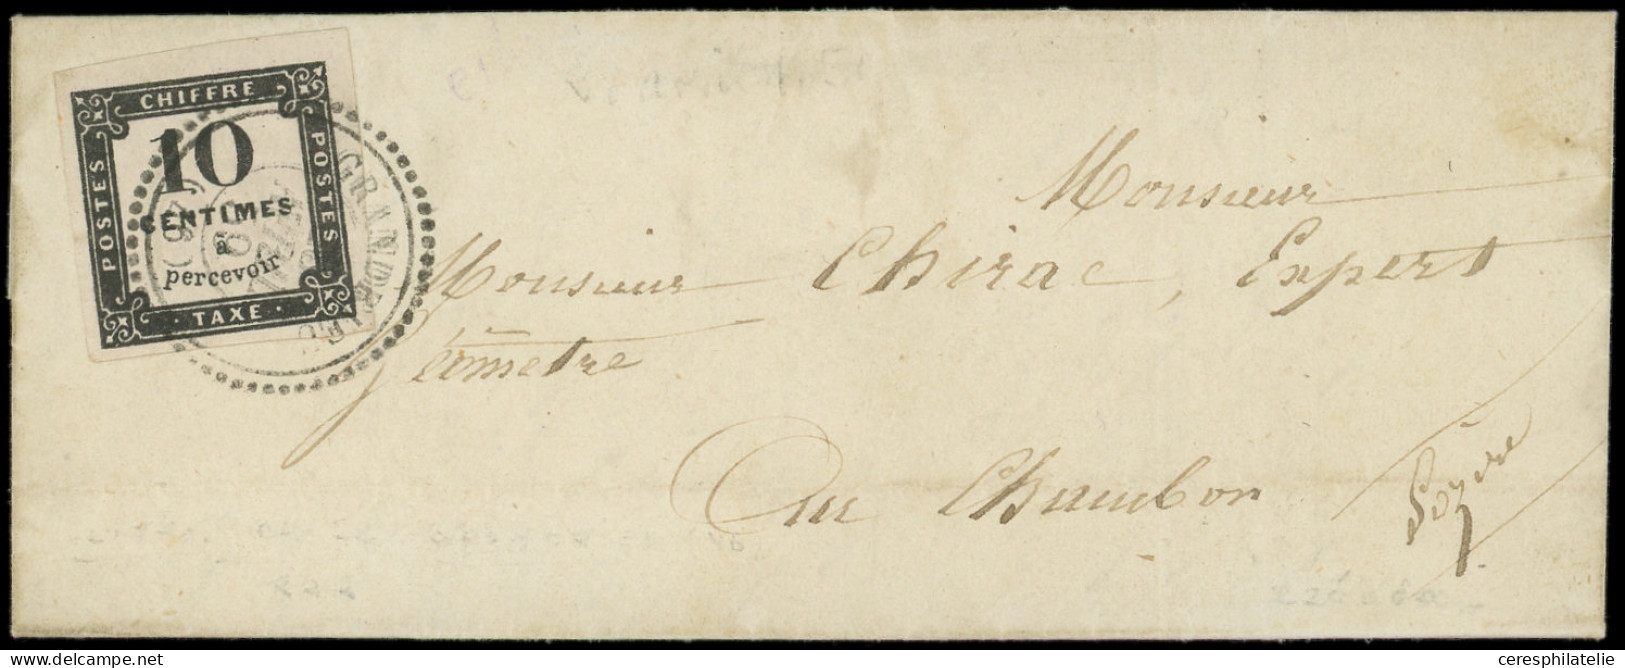 CHIFFRE
POSTES
POSTES
10
CENTIMES
à
percevoir
· TAXE ·
GRANDRIEU
(46)
Monsieur
Monsieur Chirac, Expert
Géomètre
Au Chambon
Lozère
ceresphilatelie